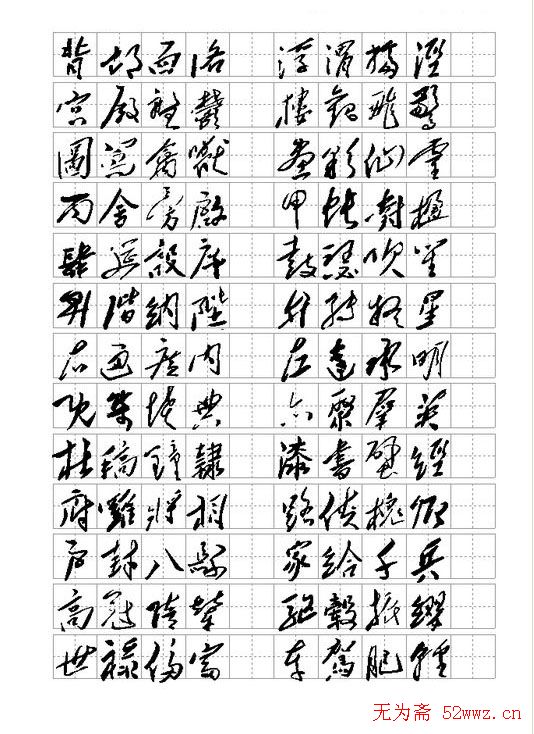 背邙面洛 浮渭據涇
宮殿盤鬱 樓觀飛驚
圖寫禽獸 畫彩仙靈
丙舍旁啟 甲帳對楹
肆筵設席 鼓瑟吹笙
昇階納陛 弁轉疑星
右通廣內 左達承明
既集墳典 亦聚群英
杜稿鍾隸 漆書壁經
府羅將相 路俠槐卿
戶封八縣 家給千兵
高冠陪輦 驅轂振纓
世祿侈富 車駕肥輕
无为斋 52wwz.cn